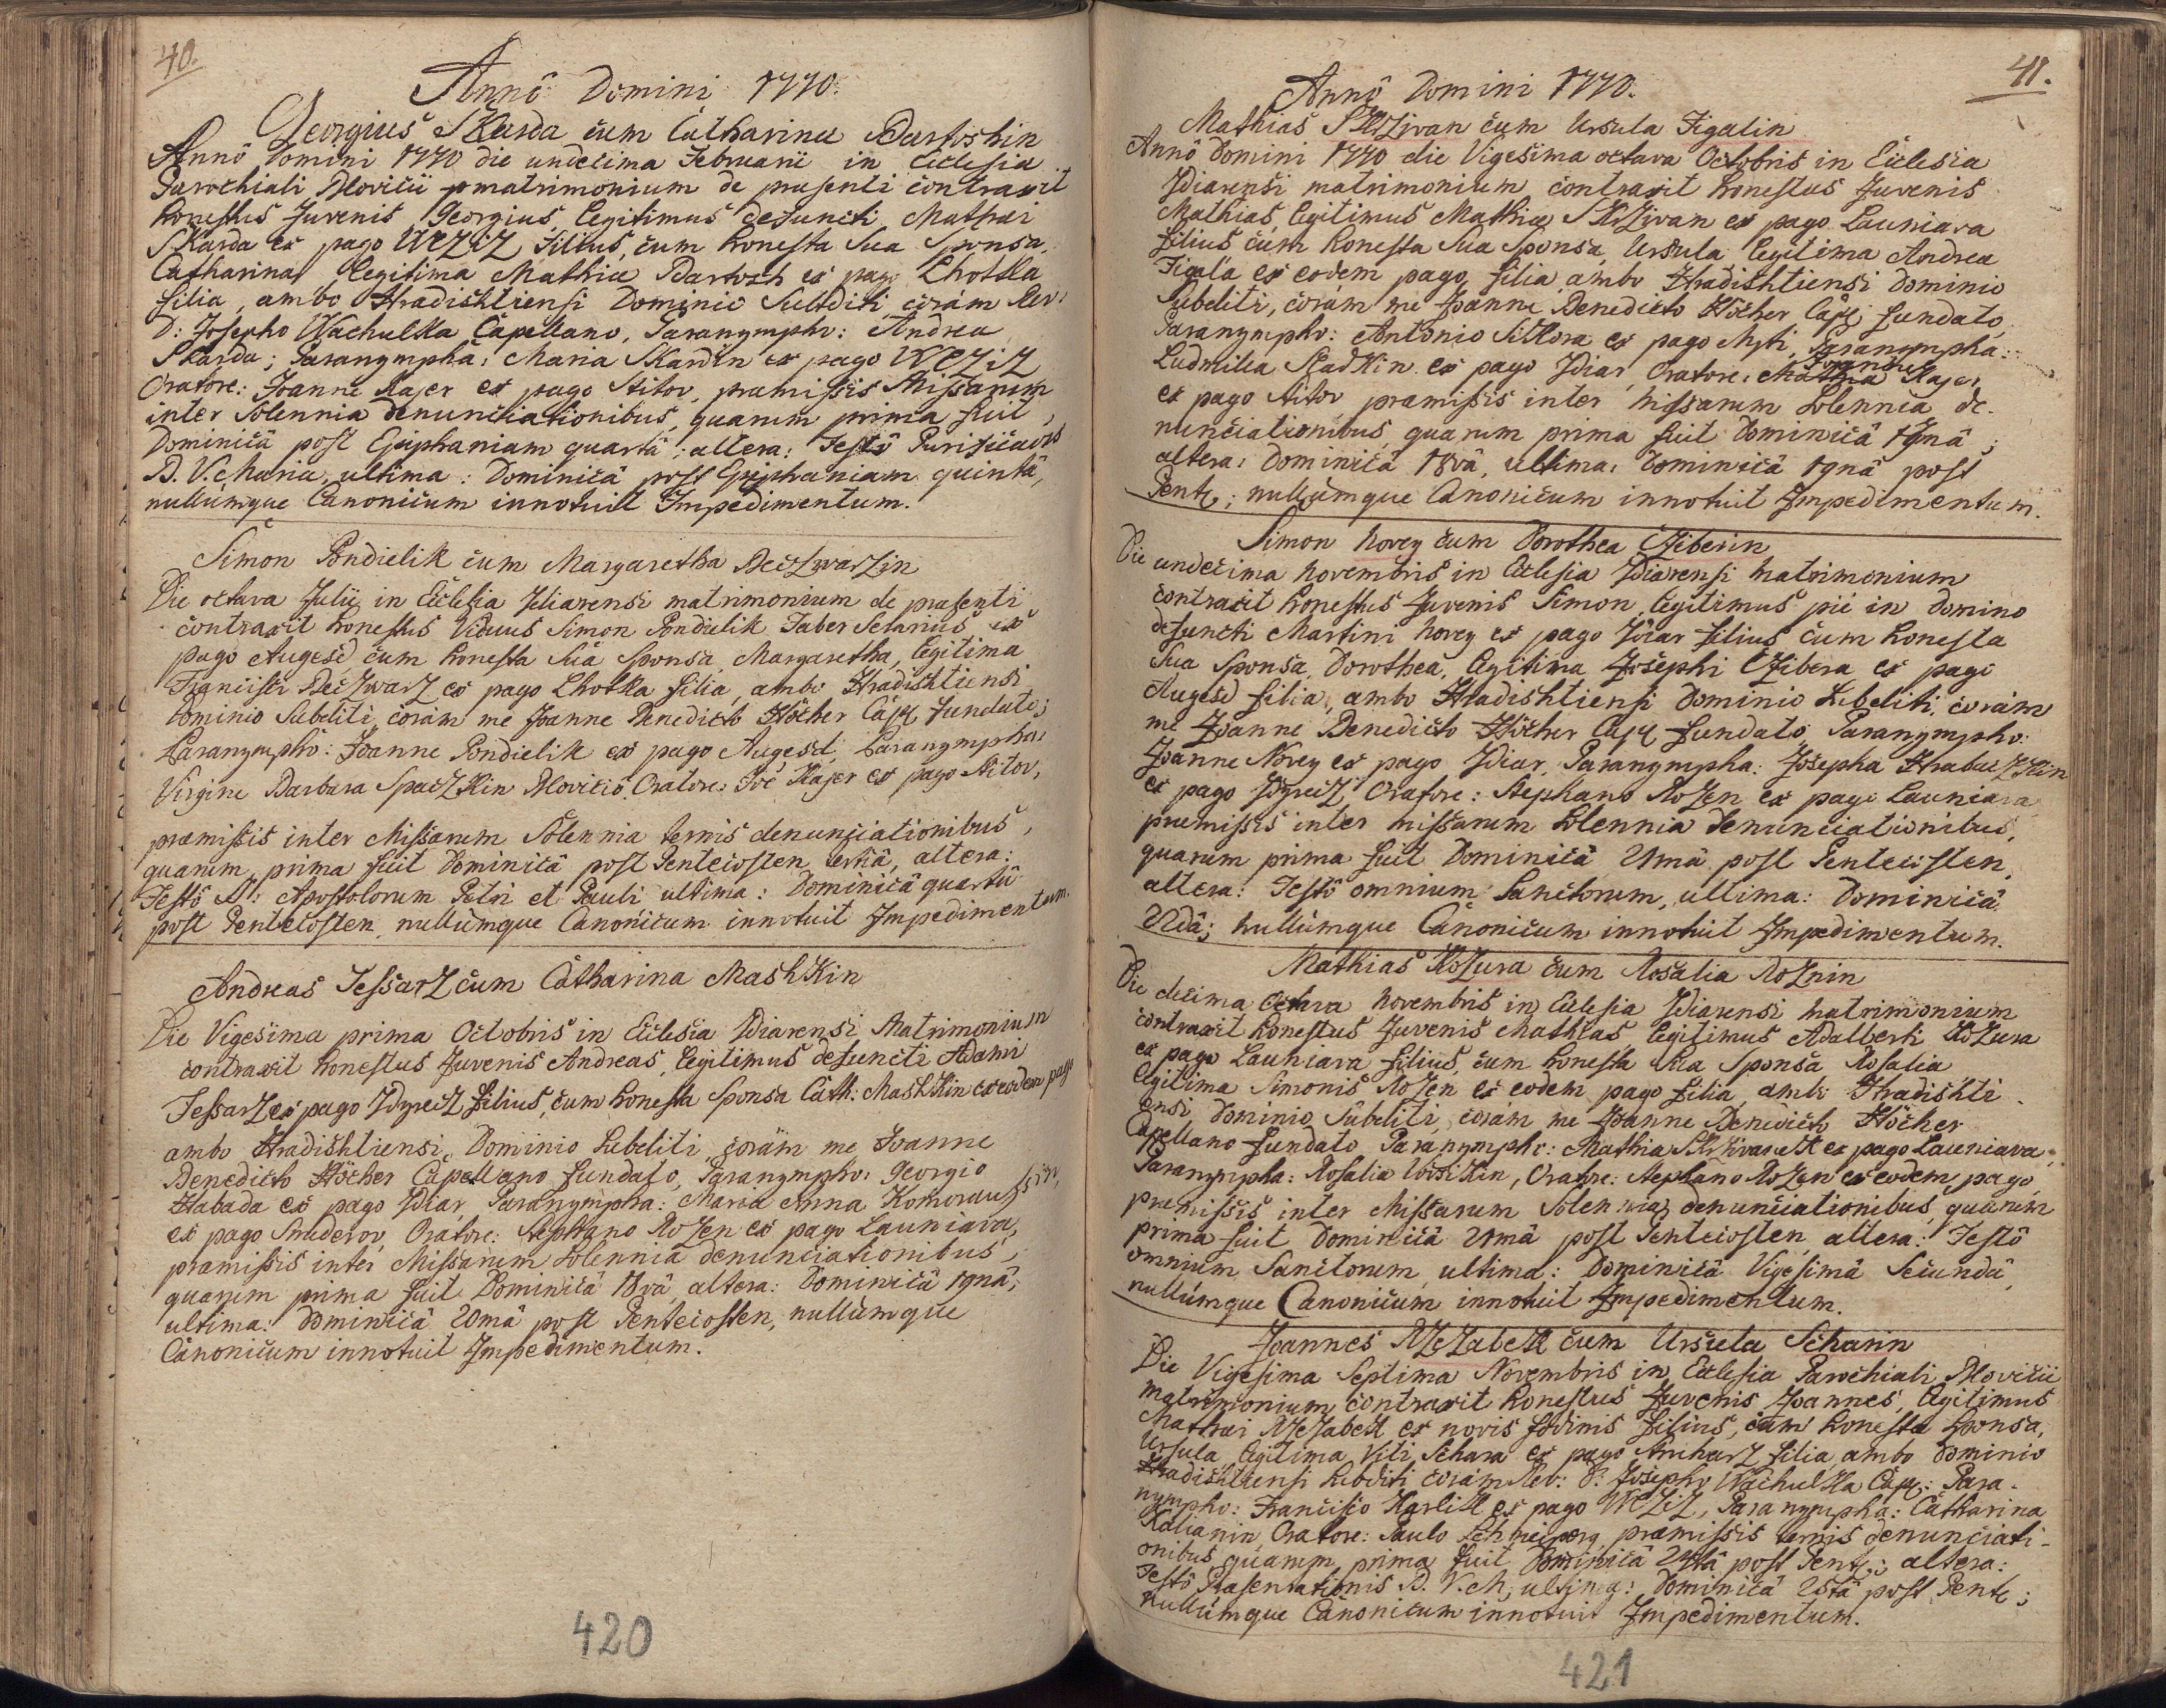 40.
Annô Domini 1770.
Georgius Skarda cum Catharina Bartoshin
Annô Domini 1770 die undecima Februarii in Ecclesia
Parochiali Blovicii matrimonium de praesenti contraxit
honestus Juvenis Georgius, legitimus defuncti Mathaei
Skarda ex pago WEZIZ filius, cum honesta Sua Sponsa,
Catharina, legitima Mathiae Bartosh ex pago Lhotka
filia, ambo Hradishtiensi Dominio Subditi, coràm Rev:
D: Josepho Wachulka Capellano, Paranympho: Andrea
Skarda; Paranympha: Maria Skardin ex pago WEZIZ
Oratore: Joanne Kajer ex pago Stitov, praemissis Missarum
inter Solennia denunciationibus, quarum prima fuit
Dominicâ post Epiphaniam quartâ; altera: Festô Purificaois
B. V. Mariae, ultima: Dominicâ post Epiphaniam quintâ,
nullúmque Canonicum innotuit Impedimentum.
Simon Pondielik cum Margaretha BeczwarZin
Die octava Julii, in Ecclesia Zdiarensi matrimonium de praesenti
contraxit honestus Viduus Simon Pondielik Faber Serarius ex
pago Augesd cum honesta Suâ Sponsa, Margaretha, legitima
Francisci BeczwarZ ex pago Lhotka filia, ambo Hradishtiensi
Dominio Subditi, coràm me Joanne Benedicto Höcher Capll fundato;
Paranymphô: Joanne Pondielik ex pago Augesd, Paranympha:
Virgine Barbara SpaczKin Blovicio, Oratore: Joê Kajer ex pago Stitov,
praemissis inter Missarum Solennia ternis denunciationibus,
quarum prima fuit Dominicâ post Pentecosten tertiâ, altera:
Festô SS: Apostolorum Petri et Pauli ultima: Dominicâ quartâ
post Pentecosten, nullúmque Canonicum innotuit Impedimentum.
Andreas TessarZ cum Catharina MashKin
Die Vigesima prima Octobris in Ecclesia Zdiarensi Matrimonium
contraxit honestus Juvenis Andreas, legitimus defuncti Adami
TessarZ ex pago ZdyreZ filius, cum honesta Sponsa Cath: MashKin ex eodem pago
ambo Hradishtiensi Dominio Subditi, coràm me Joanne
Benedicto Höcher Capellano fundato, Paranympho: Georgio
Habada ex pago Zdiar, Paranympha: Maria Anna
ex pago Smederov, Oratore: Stephano RoZen ex pago Launiava,
praemissis inter Missarum Solennia denunciationibus,
quarum prima fuit Dominicâ 18vâ, altera: Dominicâ 19nâ;
ultima: Dominicâ 20mâ post Pentecosten, nullúmque
Canonicum innotuit Impedimentum.
420
41.
Annô Domini 1770.
Mathias SKrZivan cum Ursula Figalin
Annô Domini 1770 die Vigesima octava Octobris in Ecclesia
Zdiarensi matrimonium contraxit honestus Juvenis
Mathias, legitimus Mathiae SKrZivan ex pago Launiava
filius, cum honesta Sua Sponsa, Ursula legitima Andreae
Figala ex eodem pago filia, ambo Hradishtiensi Dominio
Subditi, coràm me Joanne Benedicto Höcher Capl: fundato,
Paranympho: Antonio SiKora ex pago Myti, Paranympha:
Ludmilla HladKin ex pago Zdiar, Oratore: Joanne Kajer
ex pago Stitov praemissis inter Missarum Solennia de-
nunciationibus, quarum prima fuit Dominicâ 17mâ;
altera: Dominicâ 18vâ, ultima: Dominicâ 19nâ post
Pent.; nullúmque Canonicum innotuit Impedimentum.
Simon Novey cum Dorothea CZiberin
Die undecima Novembris in Ecclesia Zdiarensi matrimonium
contraxit honestus Juvenis Simon, legitimus piè in Domino
defuncti Martini Novey ex pago Zdiar filius cum honesta
Sua Sponsa, Dorothea, legitima Josephi CZibera ex pago
Augesd filia, ambo Hradishtiensi Dominio Subditi, coràm
me Joanne Benedicto Höcher Capll fundato, Paranympho:
Joanne Novey ex pago Zdiar, Paranympha: Josepha HrabaczKin
ex pago ZdyreZ, Oratore: Stephano RoZen ex pago Launiava
praemissis inter Missarum Solennia denunciationibus,
quarum prima fuit Dominicâ 21mâ post Pentecosten,
altera: Festô omnium Sanctorum, ultima: Dominicâ
22dâ; nullúmque Canonicum innotuit Impedimentum.
Mathias KoZura cum Rosalia RoZnin
Die decima octava Novembris in Ecclesia Zdiarensi Matrimonium
contraxit honestus Juvenis Mathias, legitimus Adalberti KoZura
ex pago Launiava filius, cum honesta Sua Sponsa Rosalia
legitima Simonis RoZen ex eodem pago filia, ambo Hradishti-
ensi Dominio Subditi, coràm me Joanne Benedicto Höcher
Capellano fundato Paranympho: Mathia SKrZivaneK ex pago Launiava,
Paranympha: Rosalia, Oratore: Stephano RoZen ex eodem pago
praemissis inter Missarum Solennia denunciationibus, quarum
prima fuit Dominicâ 21mâ post Pentecosten, altera: Festô
omnium Sanctorum, ultima: Dominicâ Vigesimâ Secundâ,
nullúmque Canonicum innotuit Impedimentum.
Joannes RZeZabeK cum Ursula Scharin
Die Vigesima Septima Novembris in Ecclesia Parochiali Blovicii
matrimonium contraxit honestus Juvenis Joannes, legitimus
Mathaei RZeZabeK ex novis fodinis filius, cum honesta Sponsa,
Ursula, legitima Viti Schara ex pago filia, ambo Dominio
Hradishtiensi Subditi, coràm Rev: D: Josepho Wachulka Capll: Para-
nympho: Francisco KarliK ex pago WEZIZ, Paranympha: Catharina
Kalianin, Oratore: Paulo, praemissis ternis denunciati-
onibus, quarum prima fuit Dominicâ 24tâ post Pent:; altera:
Festô Praesentationis B. V. M; ultima: Dominicâ 25tâ post Pent:;
nullúmque Canonicum innotuit Impedimentum.
421